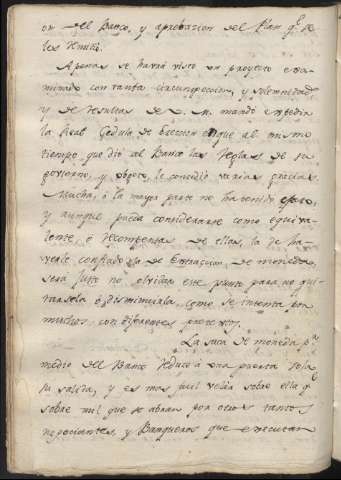 on del Banco, y aprobacion del Plan qe se
les remitió.
Apenas se havrá visto un proyecto exa-
minado con tanta circunspeccion, y solemnidad,
y de resultas de S. M. mandó expedir
la Real Cedula de ereccion en que al mismo
tiempo que dió al Banco las reglas de su
govierno, y objeto, le concedió varias gracias.
Mucha, ó la mayor parte no ha tenido efecto,
y aunque pueda considerarse como equiva-
lente, ó recompensa de ellas, la de ha-
verle confiado la de Extraccion de moneda,
será justo no olvidar este punto para no qui-
tarsela ó disminuirla, como se intenta por
muchos, con diferentes pretextos.
La saca de moneda pr
medio del Banco reduce á una puerta sola
su salida, y es mas facil velar sobre ella qe
sobre mil que se abran por otros tantos
negociantes, y Banqueros que executan